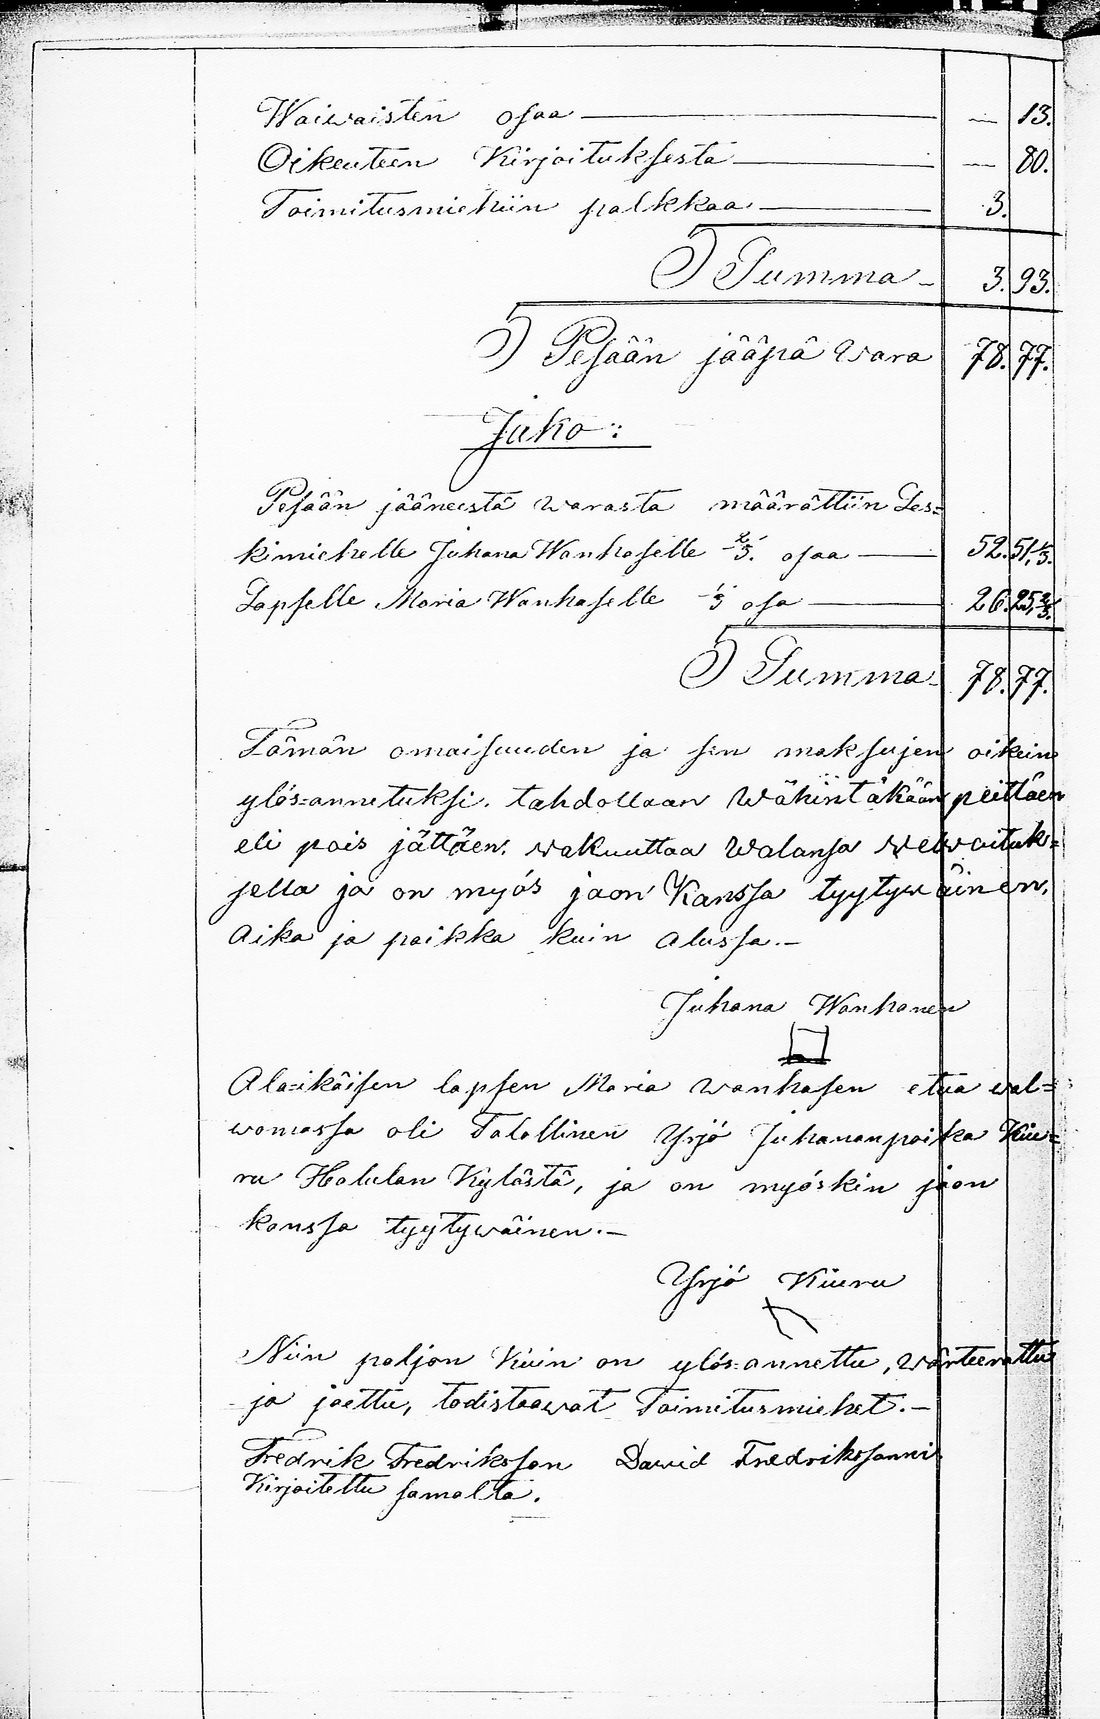 Waiwaisten osaa — — 13.
Oikeuteen Kirjoituksesta — — 80.
Toimitusmiehiin palkkaa — 3.
Summa — 3. 93.
Pesään jääpä wara 78. 77.
Jako:
Pesään jääneestä warasta määrättiin Les=
kimiehelle Juhana Wanhaselle 2/3. osaa — 52. 51,1/3.
Lapselle Maria Wanhaselle 1/3 osa — 26. 25,2/3.
Summa — 78. 77.
Tämän omaisuuden ja sen maksujen oikein
ylös=annetuksi. tahdollaan wähintäkään peittäen
eli pois jättäen. wakuuttaa walansa welwoituk=
sella ja on myös jaon Kanssa tyytywäinen,
Aika ja paikka kuin Alussa.—
Juhana Wanhanen
Ala=ikäisen lapsen Maria wanhasen etua wal=
womassa oli Talollinen Yrjö Juhananpoika Kiu=
ru Kylästä, ja on myöskin jaon
kanssa tyytywäinen.—
Yrjö Kiuru
Niin paljon Kuin on ylös=annettu, wärteerattu
ja jaettu, todistaawat Toimitusmiehet.—
Fredrik Fredriksson Dawid Fredrikssonni
Kirjoitettu samalta.